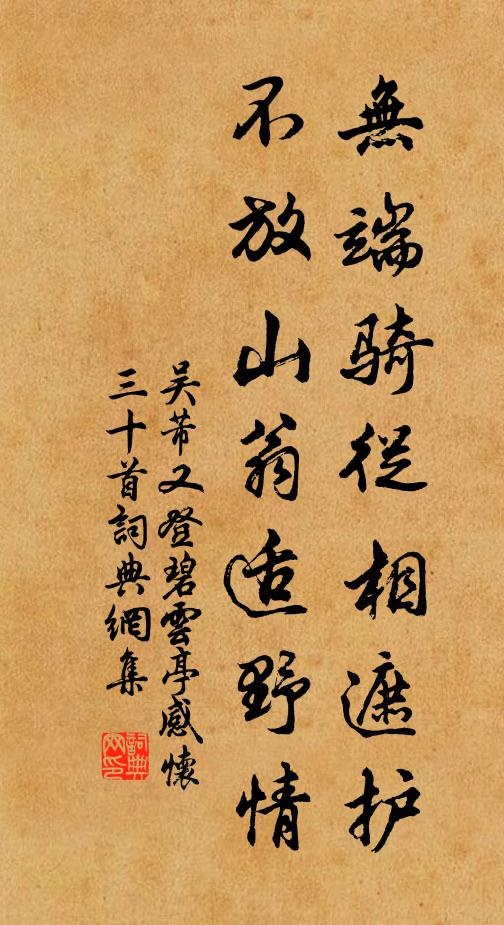 無端騎從相遮护
不放山翁适野情
吴芾又登碧雲亭感懷
三十首詞典網集
詞典网印